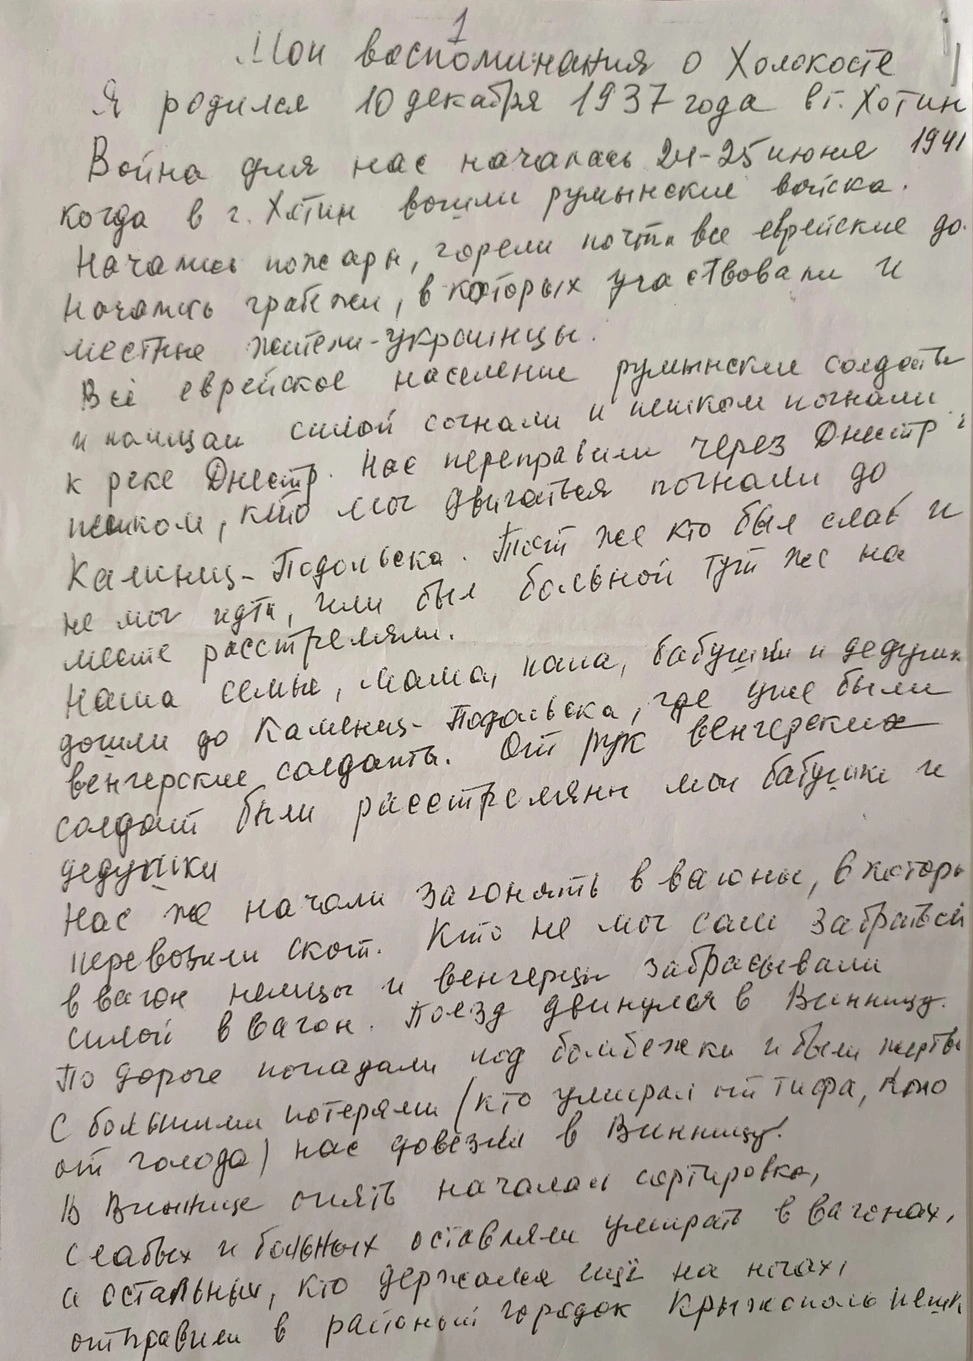 1
Мои воспоминания о Холокосте
Я родился 10 декабря 1937 года в г. Хотин
Война для нас началась 24-25 июня 1941
когда в г. Хотин вошли румынские войска.
Начались пожары, горели почти все еврейские до
Начались грабежи, в которых участвовали и
местные жители-украинцы.
Всё еврейское население румынские солдаты
и силой согнали и пешком погнали
к реке Днестр. Нас переправили через Днестр и
пешком, кто мог двигаться погнали до
Каменец-Подольска. Тот же кто был слаб и
не мог идти, или был больной тут же на
месте расстреляли.
Наша семья, мама, папа, бабушки и дедушки
дошли до Каменец-Подольска, где уже были
венгерские солдаты. От рук венгерских
солдат были расстреляны мои бабушки и
дедушки
Нас же начали загонять в вагоны, в которы
перевозили скот. Кто не мог сам забраться
в вагон немцы и венгерцы забрасывали
силой в вагон. Поезд двинулся в Винницу.
По дороге попадали под бомбежки и были жертвы
С большими потерями (кто умирал от тифа, кто
от голода) нас довезли в Винницу.
В Виннице опять началась сортировка,
слабых и больных оставляли умирать в вагонах,
а остальных, кто держался ещё на ногах,
отправили в районый городок Крыжополь пешк